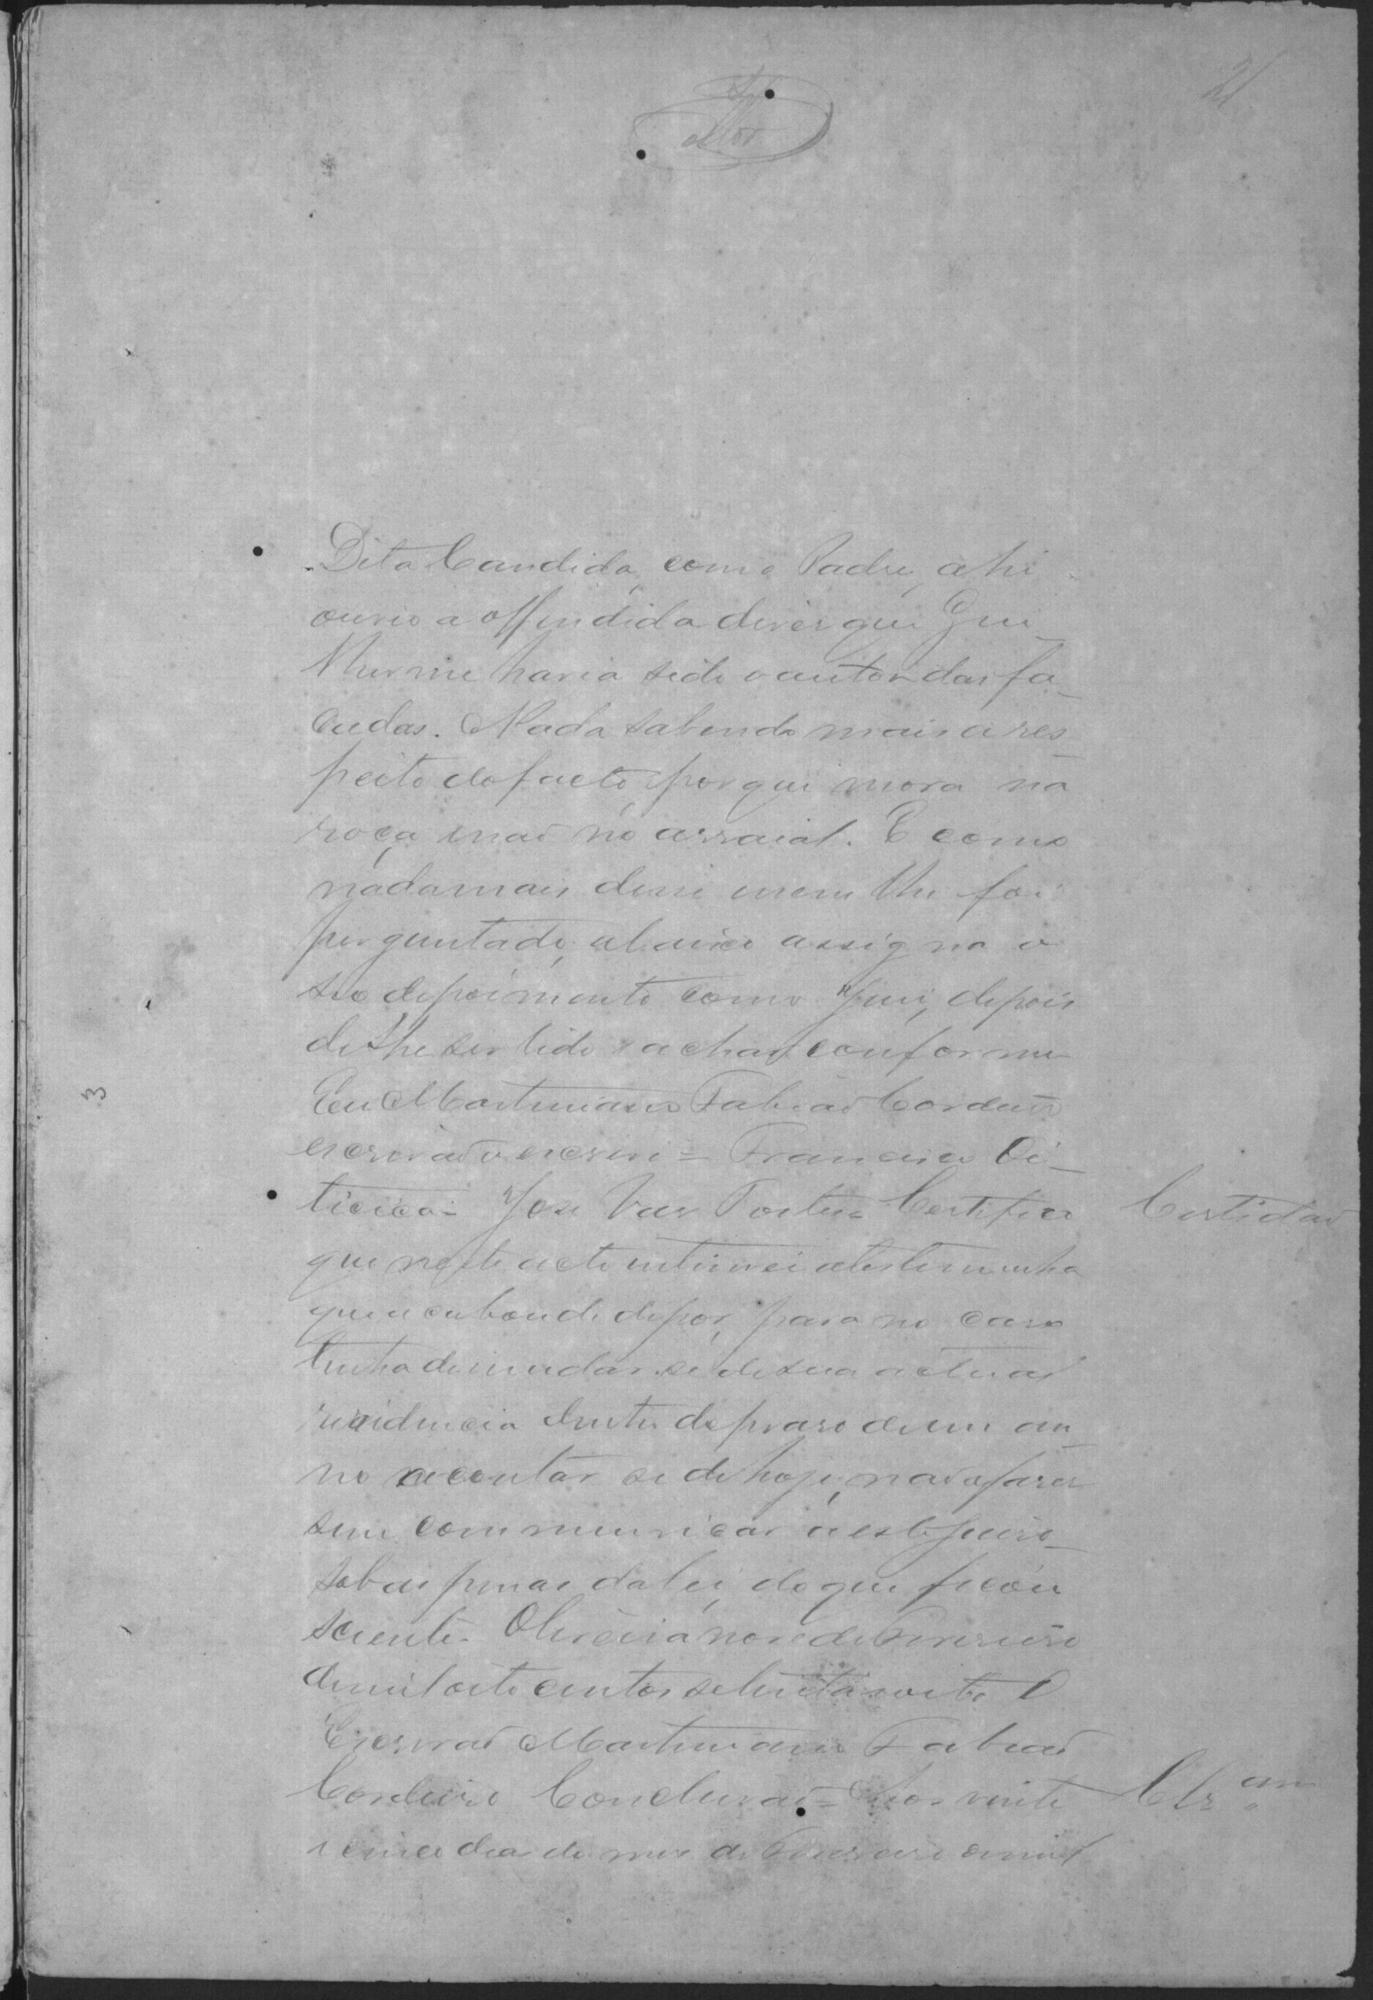 21
Dita Candida, com o Padre, ahi
ouvio a offendida diser que Gui
lherme havia sido o autor das fa-
cadas. Nada sabendo mais a res-
peito do facto, por que mora na
roça, e nao no arraial. E como
nada mais disse e nem lhe foi
perguntado, abaixo assigna o
seo depoimento como Juis, depois
de lhe ser lido e achar conforme
Eu Martiniano Fabiaõ Cordeiro
escrivaõ o escrevi = Francisco
José Vas Certifico
Certidaõ
que neste acto intimei a testemunha
que acabou de depor, para no caso
tenha de mudar-se de sua actual
residencia dentro do praso de um an
no a contar se de hoje, naõ o faser
sem communicar a este Juiso
sob as penas da lei, do que ficou
sciente. Oliveira nove de Fevereiro
de mil oito centos setenta e oito. O
Escrivaõ Martiniano Fabiaõ
Cordeiro Conclusaõ = Aos vinte
Clsam
e cinco dias do mes de Fevereiro de mil
3